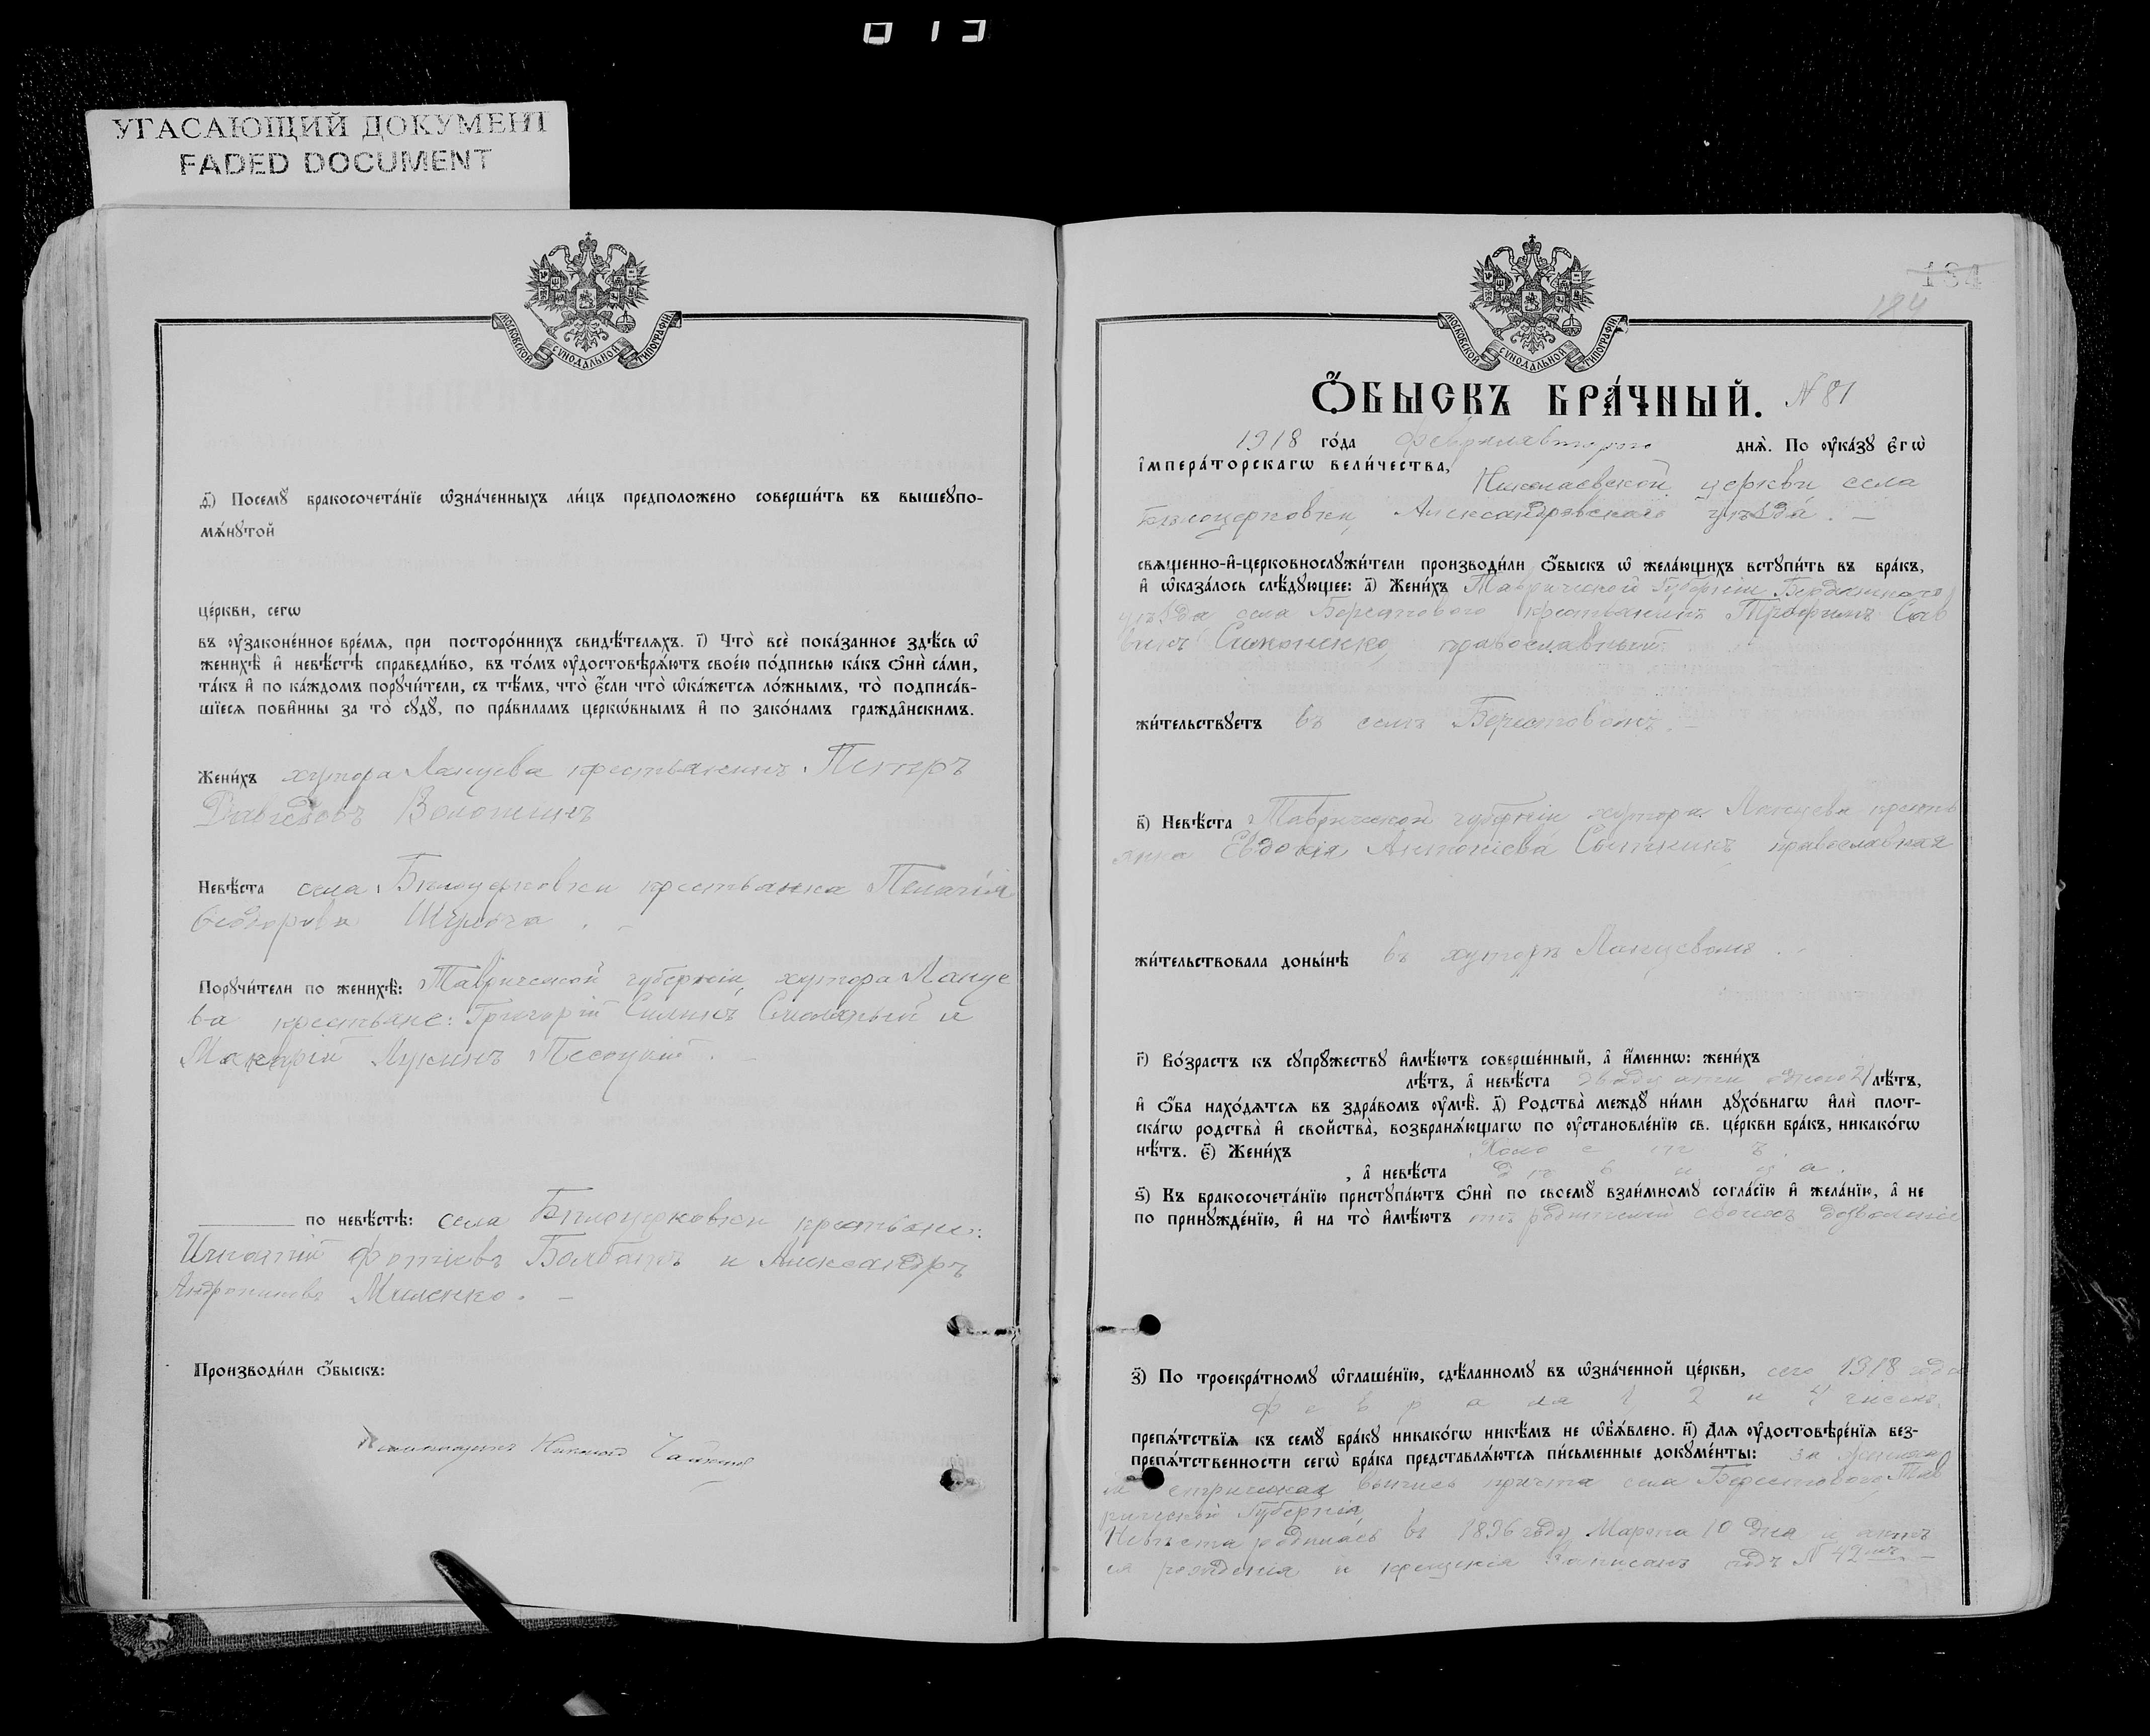 013
УГАСАЮЩИЙ ДОКУМЕНТ
FADED DOCUMENT
МОСКОВСКОЙ СѴНОДАЛЬНОЙ ТИПОГРАФІИ
ѳ҃) Посемꙋ̀ бракосочета́нїе ѡ҆зна́ченныхъ ли́цъ предположено совершить въ вышеꙋпо-
мѧ́нꙋтой
це́ркви, сегѡ
въ ᲂу҆законе́нное вре́мѧ, при посторо́ннихъ свидѣ́телѧхъ. і҃) Что̀ всѐ пока́занное здѣ́сь ѡ҆
женихѣ̀ и҆ невѣ́стѣ справедли́во, въ то́мъ ᲂу҆достовѣрѧ́ютъ свое́ю по́дписью ка́къ ѻ҆ни̑ са́ми,
та́къ и҆ по ка́ждомъ порꙋчи́тели, съ тѣ́мъ, что̀ є҆́сли что̀ ѡ҆ка́жетсѧ ло́жнымъ, то̀ подписа́в-
шїесѧ пови̑нны за то̀ сꙋдꙋ̀, по пра́виламъ церкѡ́внымъ и҆ по зако́намъ гражда̑нскимъ.
Жени́хъ хутора Ланцева крестьянинъ Петръ
Давидовъ Волошинъ
Невѣ́ста села Бѣлоцерковки крестьянка Пелагія
Ѳеодорова Шульга
Порꙋчи́тели по женихѣ̀: Таврической губерніи, хутора Ланце
ва крестьяне: Григорій Силинъ Смоляный и
Макарій Лукинъ Песоцкій.
по невѣ́стѣ: села Бѣлоцерковки крестьяне:
Игнатій Фотіевъ Балбатъ и Александръ
Миленко.
Производи́ли ѻ҆́быскъ:
Николай
МОСКОВСКОЙ СѴНОДАЛЬНОЙ ТИПОГРАФІИ
184
184
Ѻ҆́БЫСКЪ БРА́ЧНЫЙ. N 81
1918 го́да Февраля второго днѧ̀. По ᲂу҆ка́зꙋ є҆гѡ̀
і҆мпера́торскагѡ вели́чества,
Николаевской церкви села
Бѣлоцерковки, Александровскаго уѣзда. —
свѧщенно-и҆-церковнослꙋжи́тели производи́ли ѻ҆́быскъ ѡ҆ жела́ющихъ встꙋпи́ть въ бра́къ,
и҆ ѡ҆каза́лось слѣ́дꙋющее: а҃) Жени́хъ Таврической Губерніи Бердянскаго
уѣзда села Берестового крестьянинъ Трофимъ Сав
винъ Симоненко, православный
жи́тельствꙋетъ въ селѣ Берестовомъ. —
в҃) Невѣ́ста Таврической губерніи хутора Ланцева кресть
янка Евдокія Антоніева Сыткинъ православная
жи́тельствовала доны́нѣ въ хуторѣ Ланцевомъ. —
г҃) Во́зрастъ къ сꙋпрꙋ́жествꙋ и҆мѣ́ютъ соверше́нный, а҆ и҆́меннѡ: жени́хъ
лѣ́тъ, а҆ невѣ́ста двадцати одного 21 лѣ́тъ,
и҆ ѻ҆́ба нахо́дѧтсѧ въ здра́вомъ ᲂу҆мѣ̀. д҃) Родства̀ междꙋ̀ ни́ми дꙋхо́внагѡ и҆лѝ плот-
ска́гѡ родства̀ и҆ сво́йства, возбранѧ́ющагѡ по ᲂу҆становле́нїю св. це́ркви бра́къ, никако́гѡ
нѣ́тъ. є҃) Жени́хъ Холостъ.
, а҆ невѣ́ста дѣвица.
ѕ҃) Къ бракосочета́нїю пристꙋпа́ютъ ѻ҆нѝ по своемꙋ̀ взаи́мномꙋ согла́сїю и҆ жела́нїю, а҆ не
по принꙋжде́нїю, и҆ на то̀ и҆мѣ́ютъ отъ родителей своихъ дозволеніе
з҃) По троекра́тномꙋ ѡ҆глаше́нїю, сдѣ́ланномꙋ въ ѡ҆зна́ченной це́ркви, сего 1918 года
Февраля 1, 2 и 4 чиселъ,
препѧ́тствїѧ къ семꙋ̀ бра́кꙋ никако́гѡ никѣ́мъ не ѡ҆б̾ѧ́влено. и҃) Для ᲂу҆достовѣре́нїѧ без-
препѧ́тственности сегѡ̀ бра́ка представлѧ́ютсѧ пи́сьменные докꙋме́нты: за женихо
метрическая выпись причта села Берестового, Тав
рической Губерніи
Невѣста родилась въ 1896 году Марта 10 дня и актъ
ея рожденія и крещенія записанъ подъ N 42мъ. —